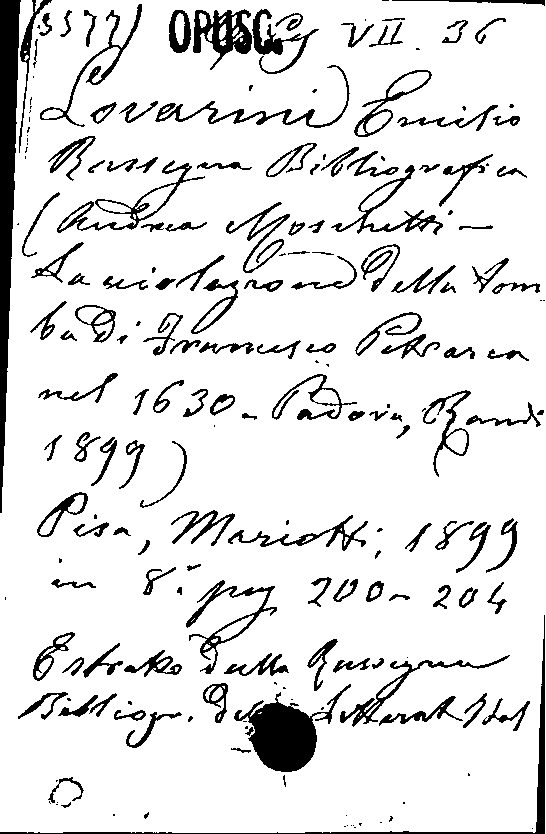 (3577) OPUSC. VII. 36
Lovarini Emilio
Rassegna Bibliografica
(Andrea Moschetti -
La violazione della tom
ba di Francesco Petrarca
nel 1630 - Padova, Randi
1899)
Pisa, Mariotti, 1899
in 8.° pag 200 - 204
Estratto dalla Rassegna
Bibliogr. della Letterat Ital